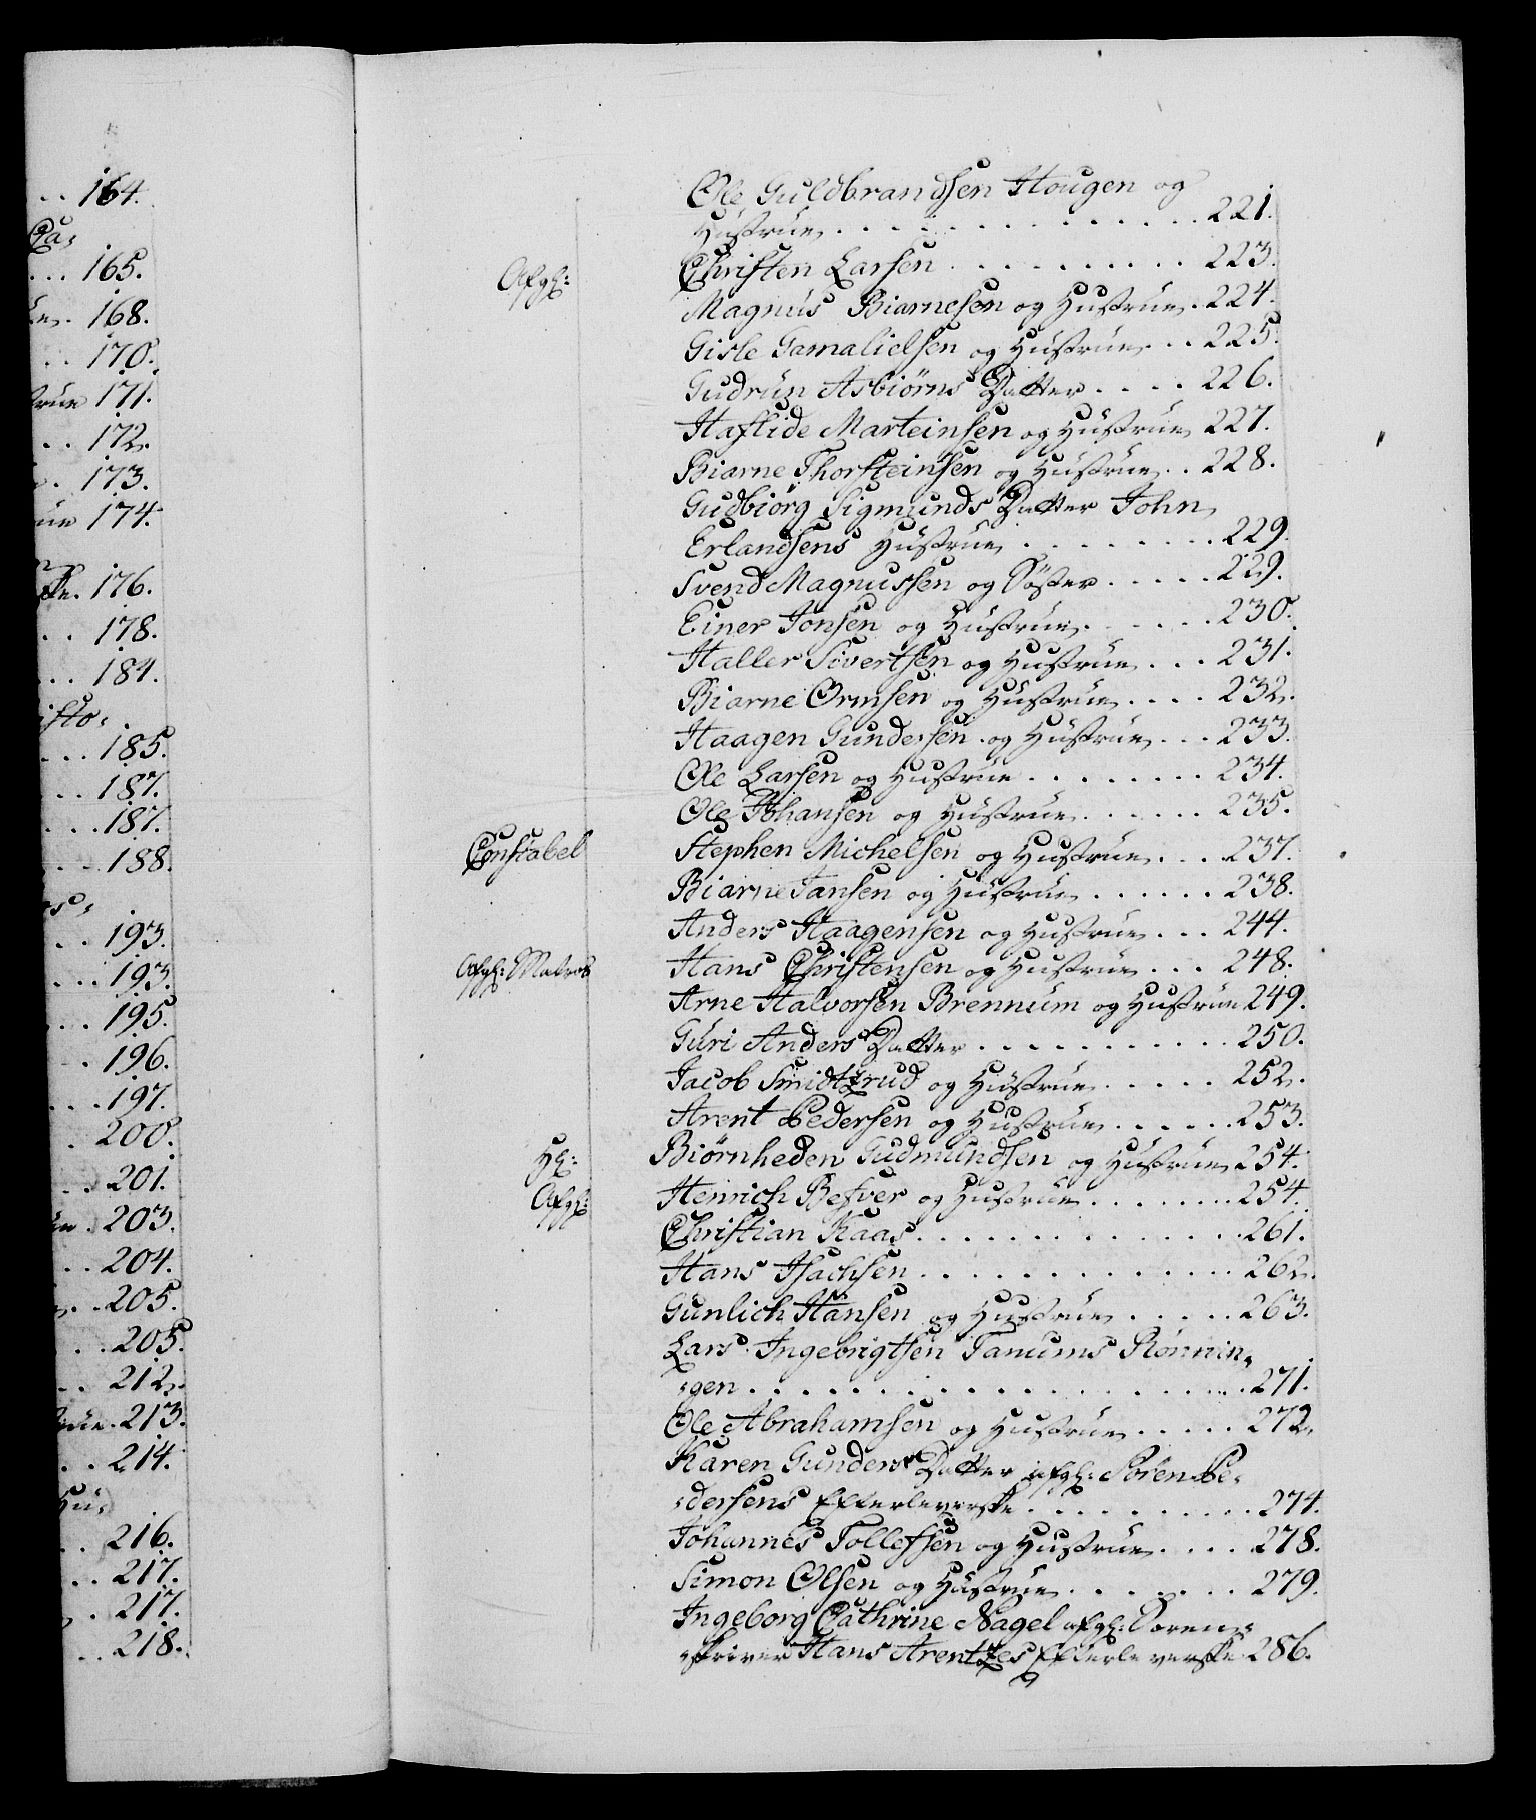 . . 164.
Ca,
. . . 165.
168.
. . 170.
true 171.
. . 172.
. 173.
rue 174.
ske. 176.
. . 178.
. . . 184.
isto,
. . . 185.
. . 187.
. . . 187.
. . . 188.
. . 193.
. . . 193.
. . . 195.
. 196.
. . . 197.
. 200.
. . . 201.
. 203.
. . 204.
. . 205.
. . 205.
. . 212.
true. 213.
. . 214.
Hu,
. . 216.
. . 217.
. 217.
. . 218.
Ole Guldbrandsen Hougen og
Hustrue . . . . . . . . . . . . 221.
Afgl: Christen Larsen . . . . . . . . . 223.
Magnus Biarnesen og Hustrue . 224.
Gisle Gamalielsen og Hustrue . . 225.
Gudrun Asbiørns Datter . . . . 226.
Haflide Marteinsen og Hustrue 227.
Biarne Thorsteinsen og Hustrue . . 228.
Gudbiørg Sigmunds Datter John
Erlandsens Hustrue . . . . . . . . 229.
Svend Magnussen og Søster . . . . . 229.
Einer Jonsen og Hustrue . . . . . . 230.
Haller Sivertsen og Hustrue . . . 231.
Biarne Ormsen og Hustrue . . . . 232.
Haagen Gundersen og Hustrue . . . 233.
Ole Larsen og Hustrue . . . . . . . . 234.
Ole Johansen og Hustrue . . . . . . 235.
Constabel Stephen Michelsen og Hustrue . . . 237.
Biarne Jansen og Hustrue . . . . . . 238.
Anders Haagensen og Hustrue . . . 244.
Afgl: Matros Hans Christensen og Hustrue . . . 248.
Arne Halvorsen Brennum og Hustrue 249.
Guri Anders Datter . . . . . . . . . . . 250.
Jacob Smidtzrud og Hustrue . . . . . 252.
Arent Pedersen og Hustrue . . . . . . 253.
Hl: Biørnheden Gudmundsen og Hustrue 254.
Afgl: Henrich Befver og Hustrue . . . . . . . 254.
Christian Kaas . . . . . . . . . . . . . 261.
Hans Isachsen . . . . . . . . . . . . . 262.
Gunlich Hansen og Hustrue . . . . . 263.
Lars Ingebrigtsen Tanums Rønnin,
,gen . . . . . . . . . . . . . . . . . . . 271.
Ole Abrahamsen og Hustrue . . . . . 272.
Karen Gunders Datter afgl: Søren Pe,
,dersens Efterleverske . . . . . . . . . 274.
Johannes Tollefsen og Hustrue . . . . 278.
Simon Olsen og Hustrue . . . . . . . 279.
Ingeborg Cathrine Nagel afgl: Soren,
,skriver Hans Arentzes Efterleverske 286.